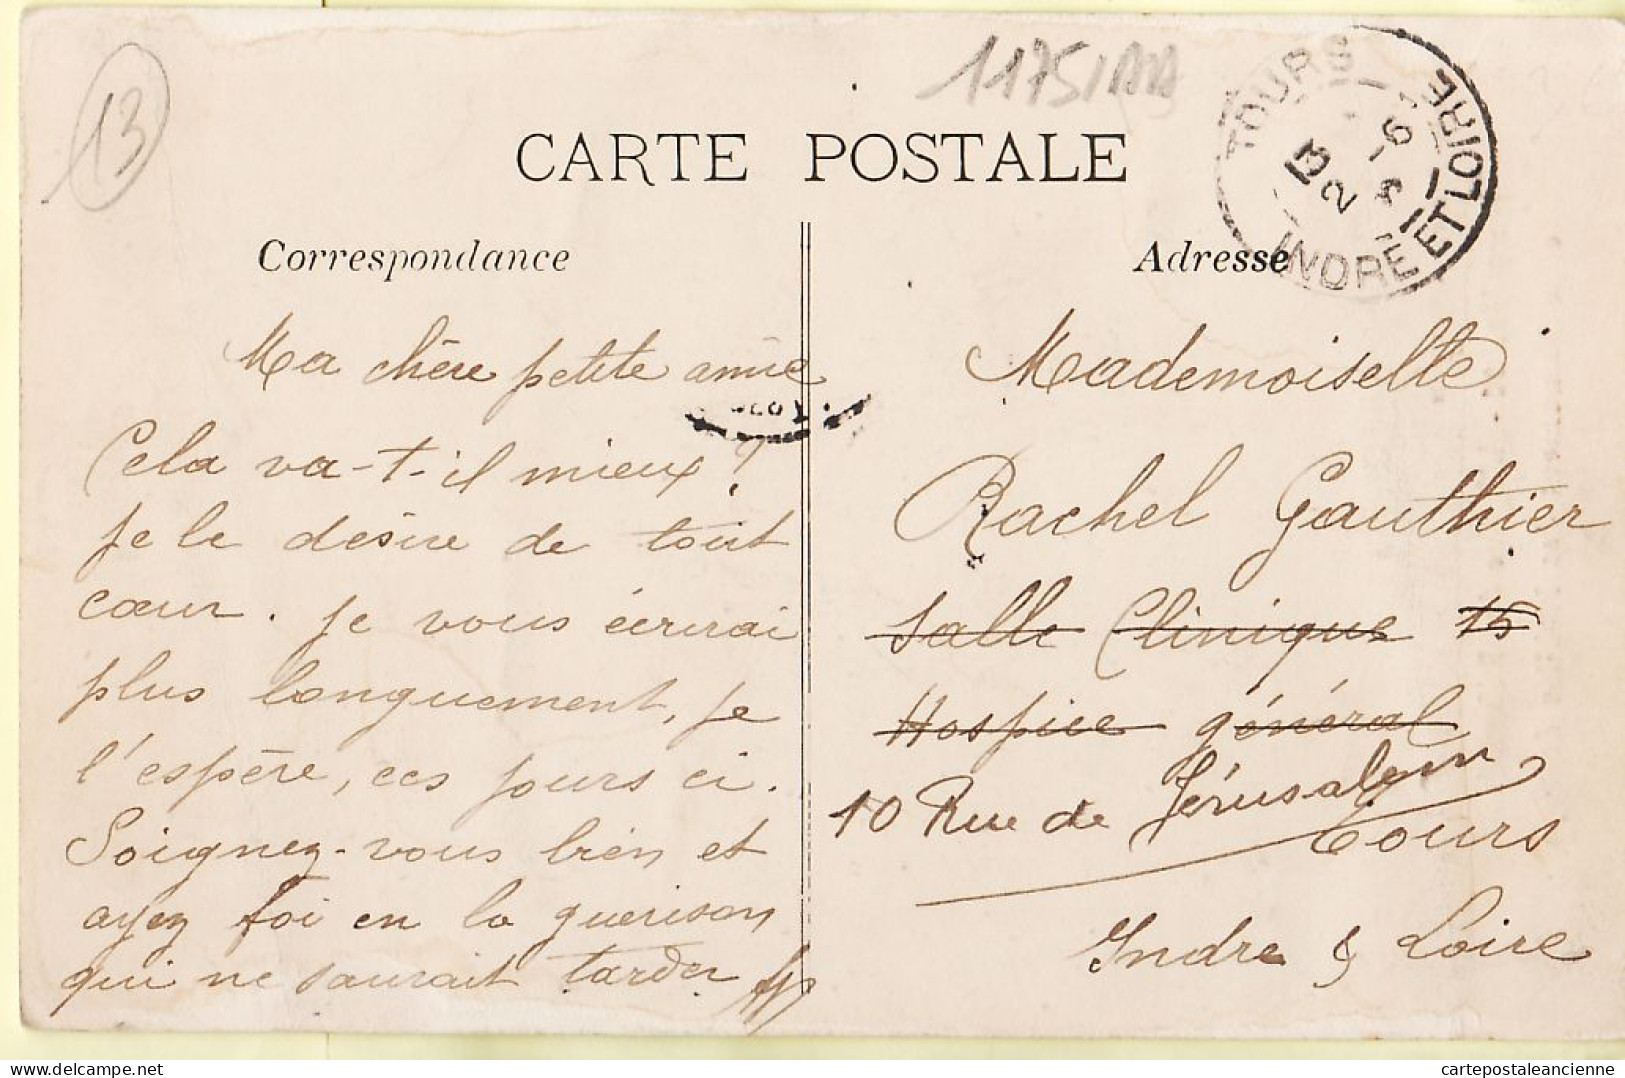 13
1175/AA
CARTE POSTALE
Correspondance
Adresse
TOURS
INDRE ET LOIRE
Ma chère petite amie
Cela va-t-il mieux?
je le désire de tout
cœur. Je vous écrirai
plus longuement, je
l'espère, ces jours ci.
Soignez-vous bien et
ayez foi en la guérison
qui ne saurait tarder
Mademoiselle
Rachel Gauthier
Salle Clinique 15
Hospice général
10 Rue de Jérusalem
Tours
Indre & Loire
cartepostaleancienne